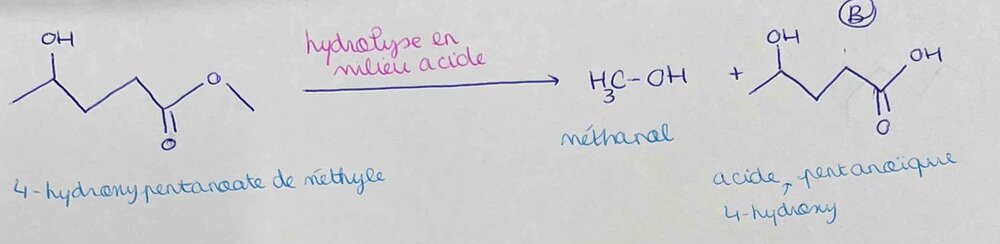 B
OH
O
O
hydrolyse en
milieu acide
H3C-OH
+
OH
OH
O
méthanol
4-hydroxypentanoate de méthyle
acide, pentanoïque
4-hydroxy